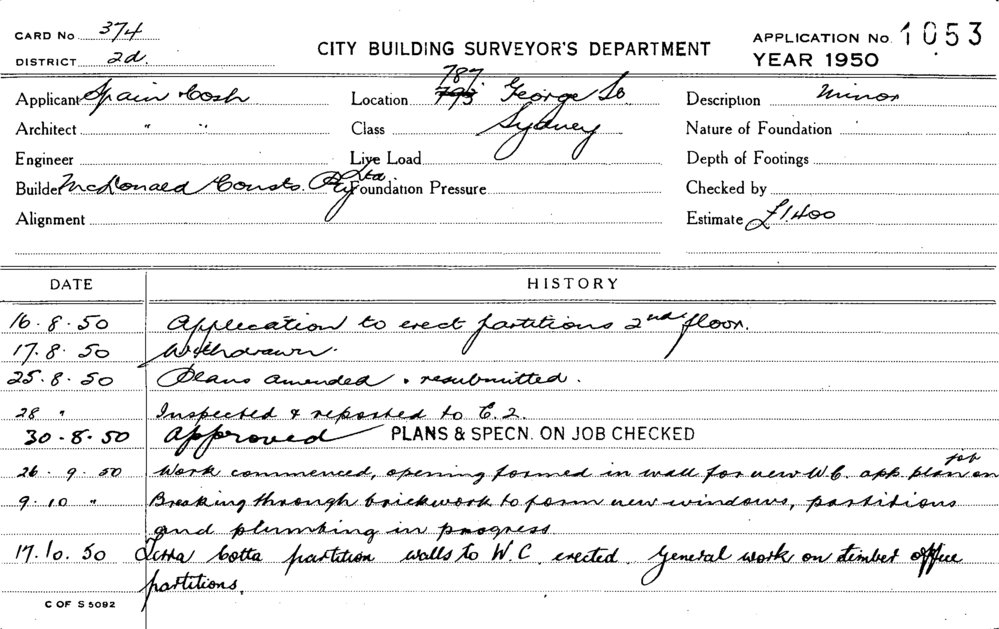 CARD No 374
DISTRICT 2d.
CITY BUILDING SURVEYOR'S DEPARTMENT
APPLICATION No. 1053
YEAR 1950
Applicant Spain Cosh
Architect " "
Engineer
Builder McDonald Consts. Pty Ltd.
Alignment
787
Location 793 George St
Class Sydney
Live Load
Foundation Pressure
Description Minor
Nature of Foundation
Depth of Footings
Checked by
Estimate £1,400
DATE HISTORY
16.8.50 Application to erect partitions 2nd floor.
17.8.50 Withdrawn.
25.8.50 Plans amended & resubmitted.
28 " Inspected & reported to C.2.
30-8-50 Approved PLANS & SPECN. ON JOB CHECKED
26.9.50 Work commenced, opening formed in wall for new W.C. app. plan on job
9.10 " Breaking through brickwork to form new windows, partitions
and plumbing in progress
17.10.50 Terra Cotta partition walls to W.C. erected. General work on timber office
partitions.
C OF S 5092